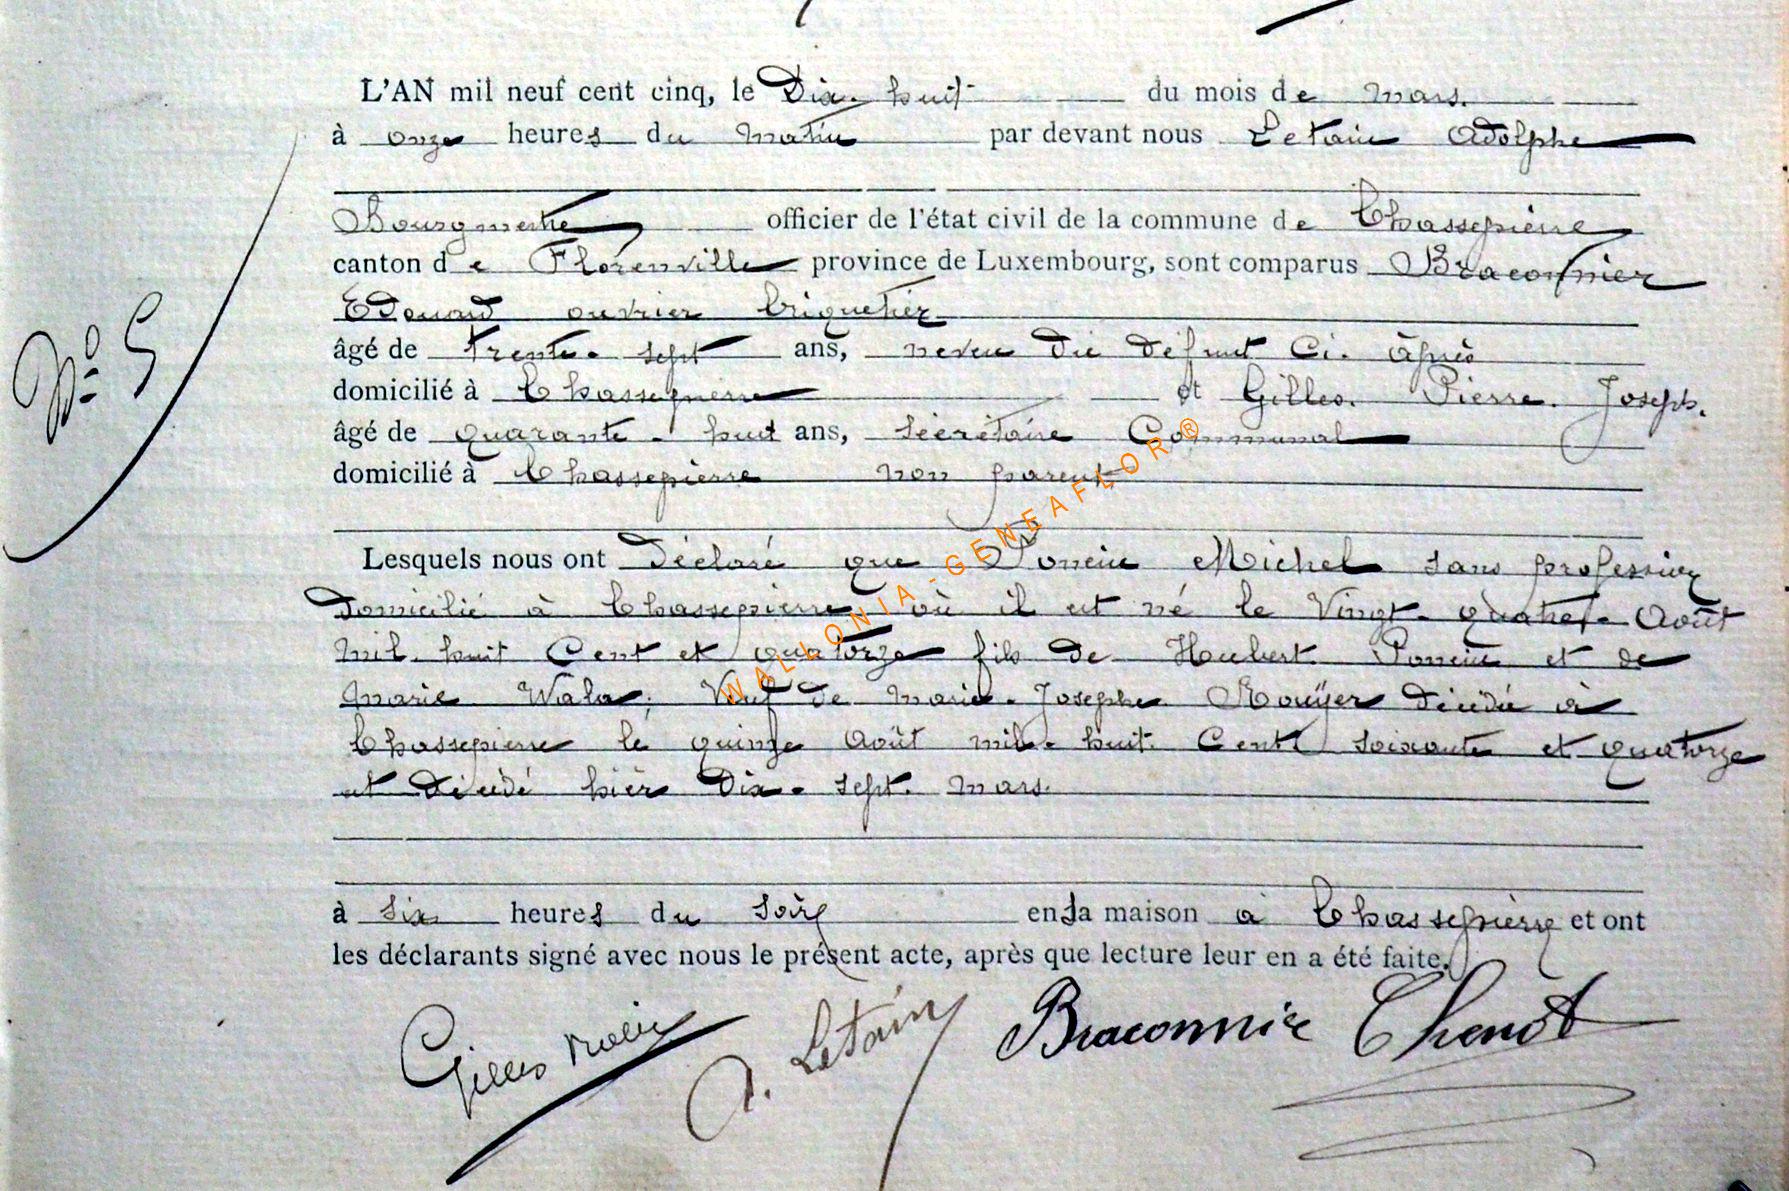 L'AN mil neuf cent cinq, le Dix-huit du mois de mars.
à onze heures du matin par devant nous Letain Adolphe
Bourgmestre officier de l'état civil de la commune de Chassepierre
canton de Florenville province de Luxembourg, sont comparus Braconnier
Edouard ouvrier briquetier
âgé de trente-sept ans, neveu du défunt ci-après
domicilié à Chassepierre et Gilles Pierre Joseph.
N° 5
âgé de quarante-huit ans, sécrétaire Communal
domicilié à Chassepierre non parent
Lesquels nous ont déclaré que Poncin Michel sans profession
domicilié à Chassepierre où il est né le Vingt-quatre Août
mil huit Cent et quatorze fils de Hubert Poncin et de
Marie Wala; Veuf de Marie-Josephe Rouÿer décédée à
Chassepierre le quinze Août mil-huit Cent soixante et quatorze
est décédé hier Dix-sept mars.
à six heures du soir en sa maison à Chassepierre et ont
les déclarants signé avec nous le présent acte, après que lecture leur en a été faite.
Gilles A. Letain Braconnier
WALLONIA-GENEAFLOR®